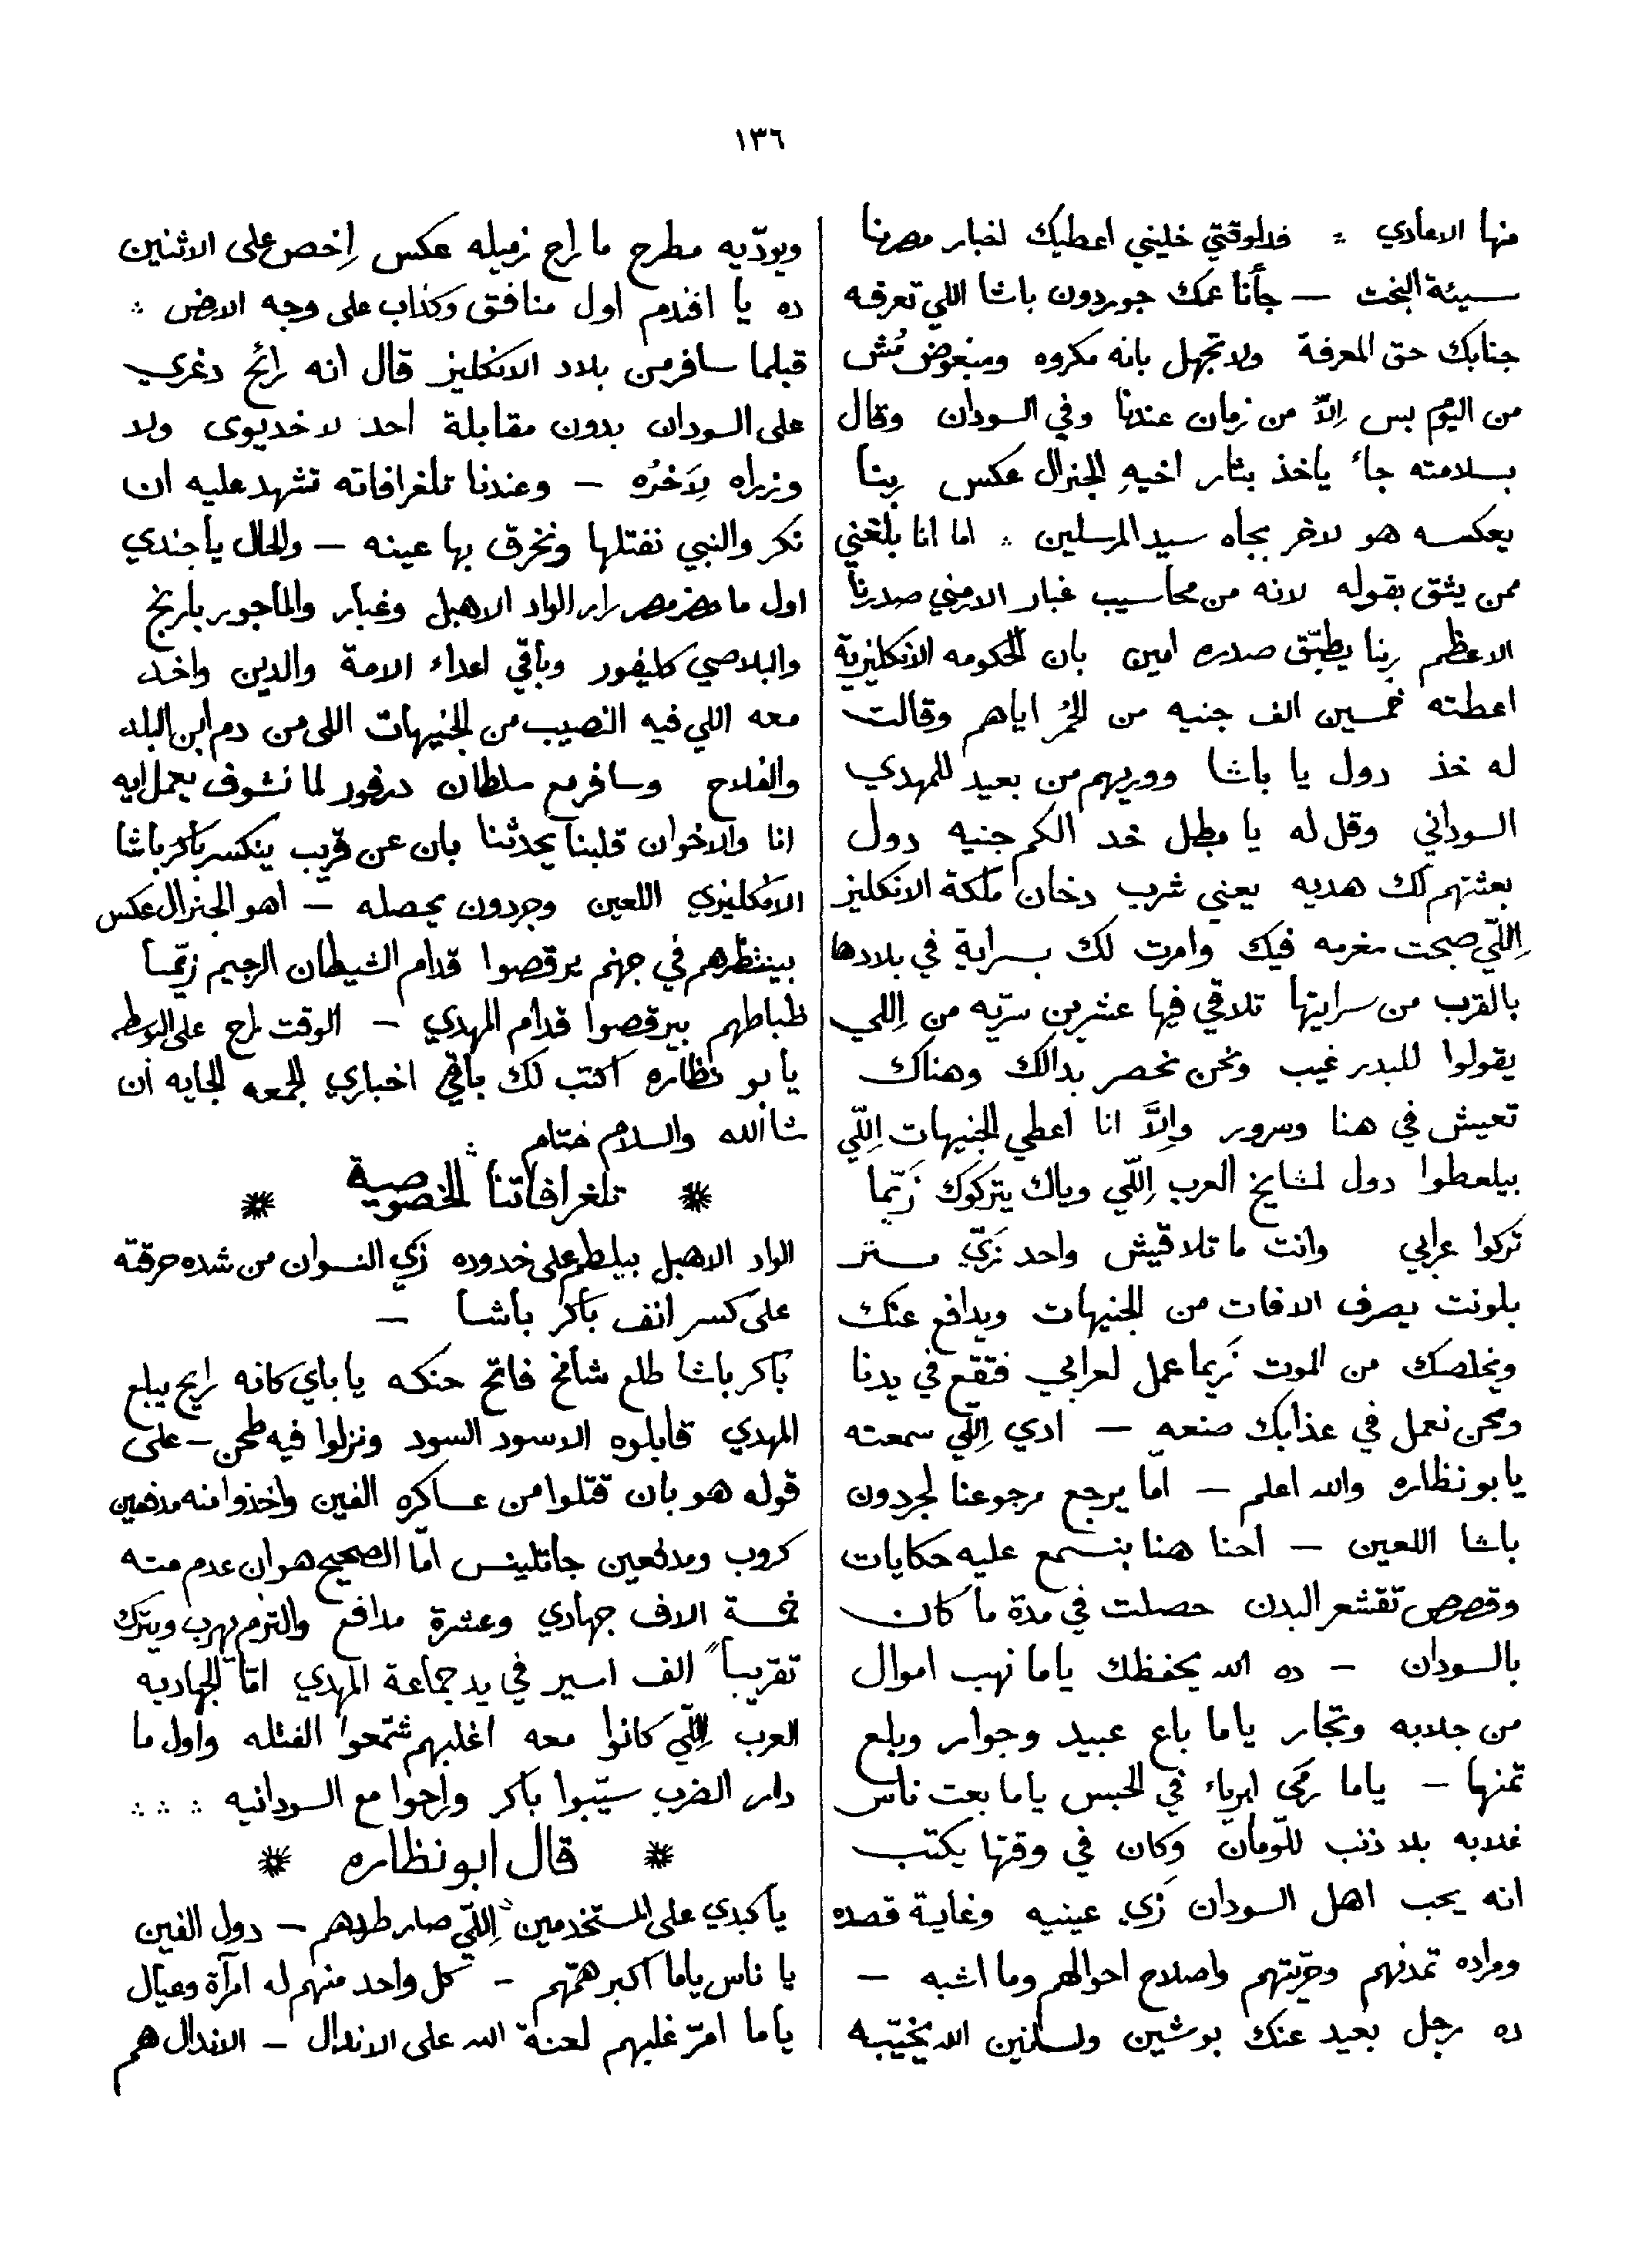 ١٣٦
منها الاعادي ∴ فدلوقتي خليني اعطيك اخبار مصرنا
سيئة البخت — جأنا عمك جوردون باشا اللي تعرفه
جنابك حق المعرفة ولا تجهل بانه مكروه ومبغوض مُش
من اليوم بس اِلاّ من زمان عندنا وفي السودان وقال
بسلامته جاء ياخذ بثار اخيهِ الجنرال عكس ربنا
يعكسه هو لاخر بجاه سيد المرسلين ∴ اما انا بلغني
ممن يثق بقوله لانه من محاسيب غبار الارمني صدرنا
الاعظم ربنا يطبّق صدره امين بان الحكومه الانكليزية
اعطته خمسين الف جنيه من الحُمر اياهم وقالت
له خذ دول يا باشا ووريهم من بعيد للمهدي
السوداني وقل له يا بطل خد الكم جنيه دول
بعثتهم لك هديه يعني شرب دخان ملكة الانكليز
اِللّي صبحت مغرمه فيك وامرت لك بسراية في بلادها
بالقرب من سرايتها تلاقي فيها عشرين سرّيه من اِللي
يقولوا للبدر غيب ونحن نحصر بدالك وهناك
تعيش في هنا وسرور واِلاَّ انا اعطي الجنيهات اِللّي
بيلعطوا دول لمشايخ العرب اِللّي وياك يتركوك زَيّما
تركوا عرابي وانت ما تلاقيش واحد زَيّ مستر
بلونت يصرف الافات من الجنيهات ويدافع عنك
ويخلصك من الموت زَيما عمل لعرابي فتقع في يدنا
ونحن نعمل في عذابك صنعه — ادي اِللّي سمعته
يا بو نظاره والله اعلم — امّا يرجع مرجوعنا لجردون
باشا اللعين — احنا هنا بنسمع عليه حكايات
وقصص تقشعر البدن حصلت في مدة ما كان
بالسودان — ده الله يحفظك ياما نهب اموال
من جلابه وتجار ياما باع عبيد وجوار وبلع
ثمنها — ياما رمى ابرياء في الحبس ياما بعت ناس
غلابه بلا ذنب للّومان وكان في وقتها يكتب
انه يحب اهل السودان زَي عينيه وغاية قصده
ومراده تمدنهم وحرّيتهم واصلاح احوالهم وما اشبه —
ده رجل بعيد عنك بوشين ولسانين الله يخيّبه
ويودّيه مطرح ما راح زميله عكس اِخص على الاثنين
ده يا افندم اول منافق وكذاب على وجه الارض ∴
قبلما سافر من بلاد الانكليز قال انه رائح دغري
على السودان بدون مقابلة احد لا خديوى ولا
وزراه لِاَخرُه — وعندنا تلغرافاته تشهد عليه ان
نكر والنبي نفتلها ونخرق بها عينه — والحال يا جندي
اول ما حضر مصر زار الواد الاهبل وغبار والماجور بارنج
والبلاصي كليفور وباقي اعداء الامة والدين واخد
معه اللي فيه النصيب من الجنيهات اللى من دم ابن البلد
والفلاح وسافر مع سلطان درفور لما نشوف يعمل ايه
انا والاخوان قلبنا يحدثنا بان عن قريب ينكسر باكر باشا
الانكليزي اللعين وجردون يحصله — اهو الجنرال عكس
بينتظرهم في جهنم يرقصوا قدام الشيطان الرجيم زيّما
ظباطهم بيرقصوا قدام المهدي — الوقت راح على البوسطه
يا بو نظاره اكتب لك باقي اخباري الجمعه الجايه ان
شالله والسلام ختام ∴
تلغرافاتنا الخصوصية
الواد الاهبل بيلطم على خدوده زَي النسوان من شده حرقته
على كسر انف باكر باشا —
باكر باشا طلع شامخ فاتح حنكه يا باي كانه رايح يبلع
المهدي قابلوه الاسود السود ونزلوا فيه طحن — على
قوله هو بان قتلوا من عساكره الفين واخذوا منه مدفعين
كروب ومدفعين جاتلينس امّا الصحيح هو ان عدم مته
خمسة الاف جهادي وعشرة مدافع والتزم يهرب ويترك
تقريباً الف اسير في يد جماعة المهدي امّا الجهاديه
العرب اِللّي كانوا معه اغلبهم شمّعوا الفتله واول ما
دار الضرب سيّبوا باكر وراحوا مع السودانيه ∴ ∴ ∴
قال ابو نظاره
يا كبدي على المستخدمين اِللّي صار طردهم — دول الفين
يا ناس ياما اكبر همّهم — كل واحد منهم له امرآة وعيال
ياما امرّ غلبهم لعنة الله على الاندال — الاندال هم